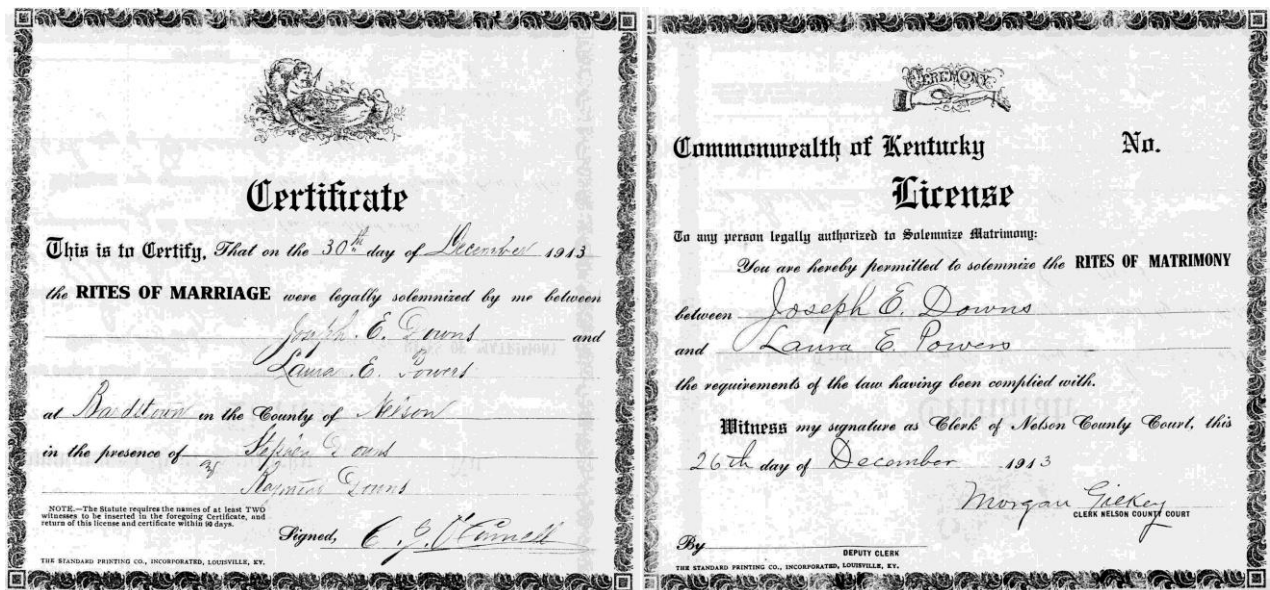 Certificate
This is to Certify, That on the 30th day of December 1913
the RITES OF MARRIAGE were legally solemnized by me between
Joseph E. Downs and
Laura E. Powers
at Bardstown in the County of Nelson
in the presence of Stephen Downs
Downs
NOTE.—The Statute requires the names of at least TWO
witnesses to be inserted in the foregoing Certificate, and
return of this license and certificate within 90 days.
Signed, C. J. O'Connell
THE STANDARD PRINTING CO., INCORPORATED, LOUISVILLE, KY.
CEREMONY
Commonwealth of Kentucky No.
License
To any person legally authorized to Solemnize Matrimony:
You are hereby permitted to solemnize the RITES OF MATRIMONY
between Joseph E. Downs
and Laura E. Powers
the requirements of the law having been complied with.
Witness my signature as Clerk of Nelson County Court, this
26th day of December 1913
Morgan Gilkey
CLERK NELSON COUNTY COURT
By
DEPUTY CLERK
THE STANDARD PRINTING CO., INCORPORATED, LOUISVILLE, KY.